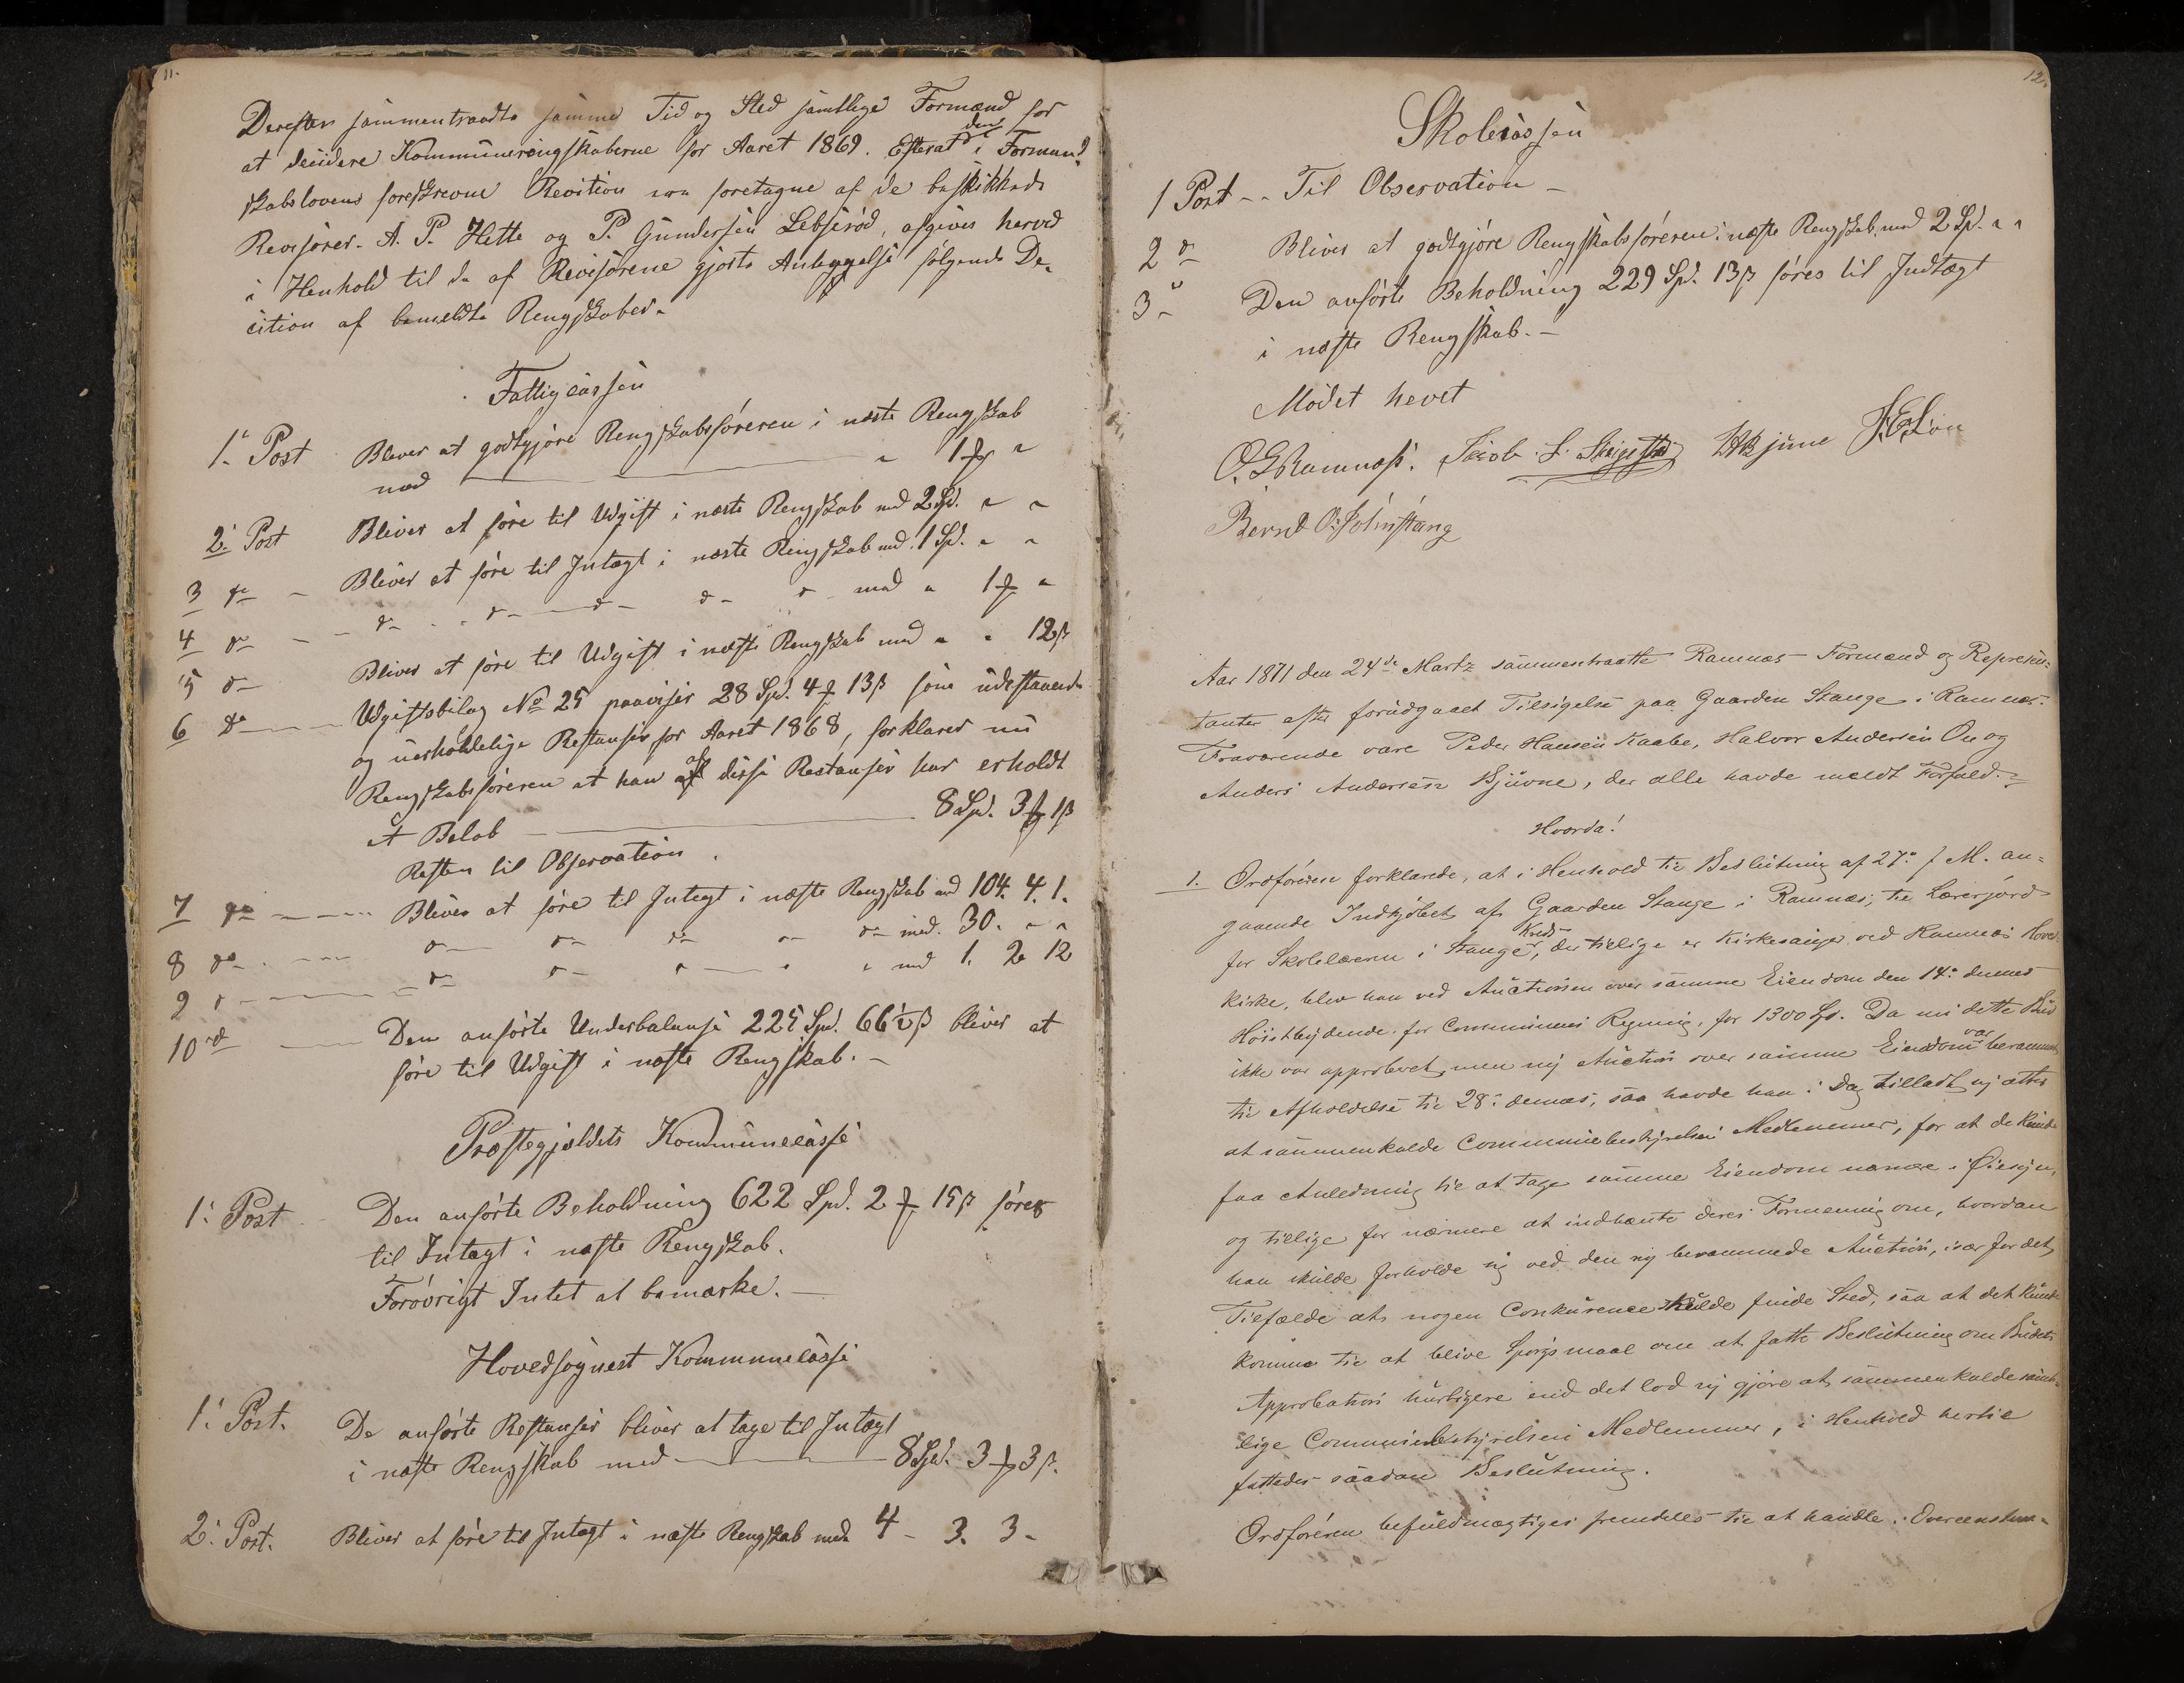 11.
Derefter sammentraadte samme Tid og Sted samtlige Formænd for
at decidere Kommuneregnskaberne for Aaret 1869. Efterat den i Formand-
skabsloven foreskrevne Revition var foretagne af de beskikkede
Revisorer A. P. Hette og P. Gundersen Lebsjerød, afgives herved
i Henhold til de af Revisorene gjorte Antegnelse følgende De-
cition af bemeldte Regnskaber.
Fattigcassen
1. Post Bliver at godtgjøre Rengskabsføreren i næste Rengskab
med " 1 "
2. Post Bliver at føre til Udgift i næste Rengskab med 2 Spd. " "
3 do - Bliver at føre til Intægt i næste Rengskab med 1 Spd. " "
4 do - do - do - do - do med " 1 "
5 do Bliver at føre til Udgift i næste Rengskab med " " 12 ß
6 do Udgiftsbilag No 25 paaviser 28 Spd. 4 13 ß som udestaaende
og uerholdelige Restanser for Aaret 1868, forklarer nu
Rengskabsføreren at han af disse Restanser har erholdt
et Beløb 8 Spd. 3 1 ß
Resten til Observation.
7 do Bliver at føre til Intægt i næste Rengskab med 104. 4. 1.
8 do do do do do do med. 30. " "
9 do do do " " med 1. 2 12
10 do Den anførte Underbalanse 225 Spd. 66½ ß bliver at
føre til Udgift i næste Rengskab. -
Præstegjeldets Kommunecasse
1. Post Den anførte Beholdning 622 Spd. 2 15 ß føres
til Intægt i næste Rengskab.
Forøvrigt Intet at bemærke. -
Hovedsognest Kommunecasse
1. Post. De anførte Restanser bliver at tage til Intægt
i næste Rengskab med 8 Spd. 3 3 ß.
2. Post. Bliver at føre til Intægt i næste Rengskab med 4 - 3. 3 -
12.
Skolecassen
1 Post - - Til Observation -
2 do Bliver at godtgjøre Rengskabsføreren i næste Rengskab med 2 Spd. " "
3 - Den anførte Beholdning 229 Spd. 13 ß føres til Indtægt
i næste Rengskab. -
Mødet hevet
O. G. Ramnæs. Jacob L. Skjeggestad
Bernt O. Solmstang
Aar 1871 den 24de Martz sammentraatte Ramnæs Formænd og Represen-
tanter efter forudgaaet Tilsigelse paa Gaarden Stange i Ramnæs.
Fraværende vare Peder Hansen Kaabe, Halvor Andersen On og
Anders Andersen Bjuvne, der alle havde meldt Forfald.
Hvorda!
1. Ordføreren forklarede, at i Henhold til Beslutning af 27. f M. an-
gaaende Indkjøbet af Gaarden Stange i Ramnæs, til Lærerjord
for Skolelæreren i Stange Kreds, der tillige er Kirkesanger ved Ramnæs Hoved-
kirke, blev han ved Auctionen over samme Eiendom den 14. dennes
Høistbydende for Communens Regning, for 1300 Spd. Da nu dette Bud
ikke var approberet, men ny Auction over samme Eiendom var berammet
til Afholdelse til 28. dennes, saa havde han i Dag tilladt sig atter
at sammenkalde Communebestyrelsens Medlemmer, for at de kunde
faa Anledning til at tage samme Eiendom nærmere i Øiesyn,
og tillige for nærmere at indhente deres Formening om, hvordan
han skulde forholde sig ved den ny berammede Auction, især for det
Tilfælde at nogen Conkurence skulde finde Sted, saa at det kunde
komme til at blive Spørgsmaal om at fatte Beslutning om Budets
Approbation hurtigere end det lod sig gjøre at sammenkalde samt-
lige Communebestyrelsens Medlemmer, i Henhold hertil
fattedes saadan Beslutning.
Ordføreren befuldmægtiges fremdeles til at handle i Overensstem-